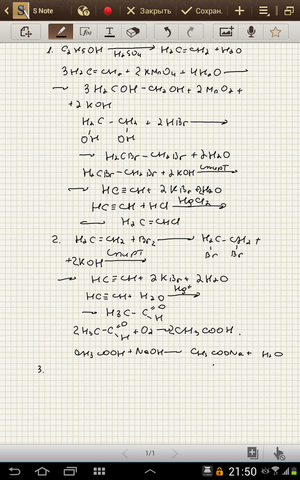 S Note
Закрыть
Сохран.
1. C₂H₅OH —H₂SO₄→ H₂C=CH₂ + H₂O
3H₂C=CH₂ + 2KMnO₄ + 4H₂O →
→ 3H₂COH–CH₂OH + 2MnO₂ +
+ 2KOH
H₂C – CH₂ + 2HBr →
OH OH
→ H₂CBr–CH₂Br + 2H₂O
H₂CBr–CH₂Br + 2KOH —спирт→
→ HC≡CH + 2KBr + 2H₂O
HC≡CH + HCl —HgCl₂→
→ H₂C=CHCl
2. H₂C=CH₂ + Br₂ → H₂C–CH₂ +
Br Br
+ 2KOH —спирт→
→ HC≡CH + 2KBr + 2H₂O
HC≡CH + H₂O —Hg⁺→
→ H₃C–C=O H
2H₃C–C=O H + O₂ → 2CH₃COOH.
CH₃COOH + NaOH → CH₃COONa + H₂O
3.
1/1
21:50